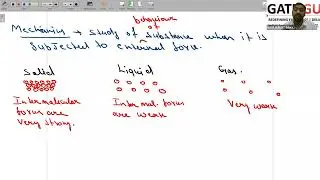 behaviour
of
Mechanics → Study of Substance when it is
Subjected to external force.
Solid
Liquid
Gas.
Intermolecular
forces are
very strong.
Intermol. forces
are weak
Very weak
GAT
GU